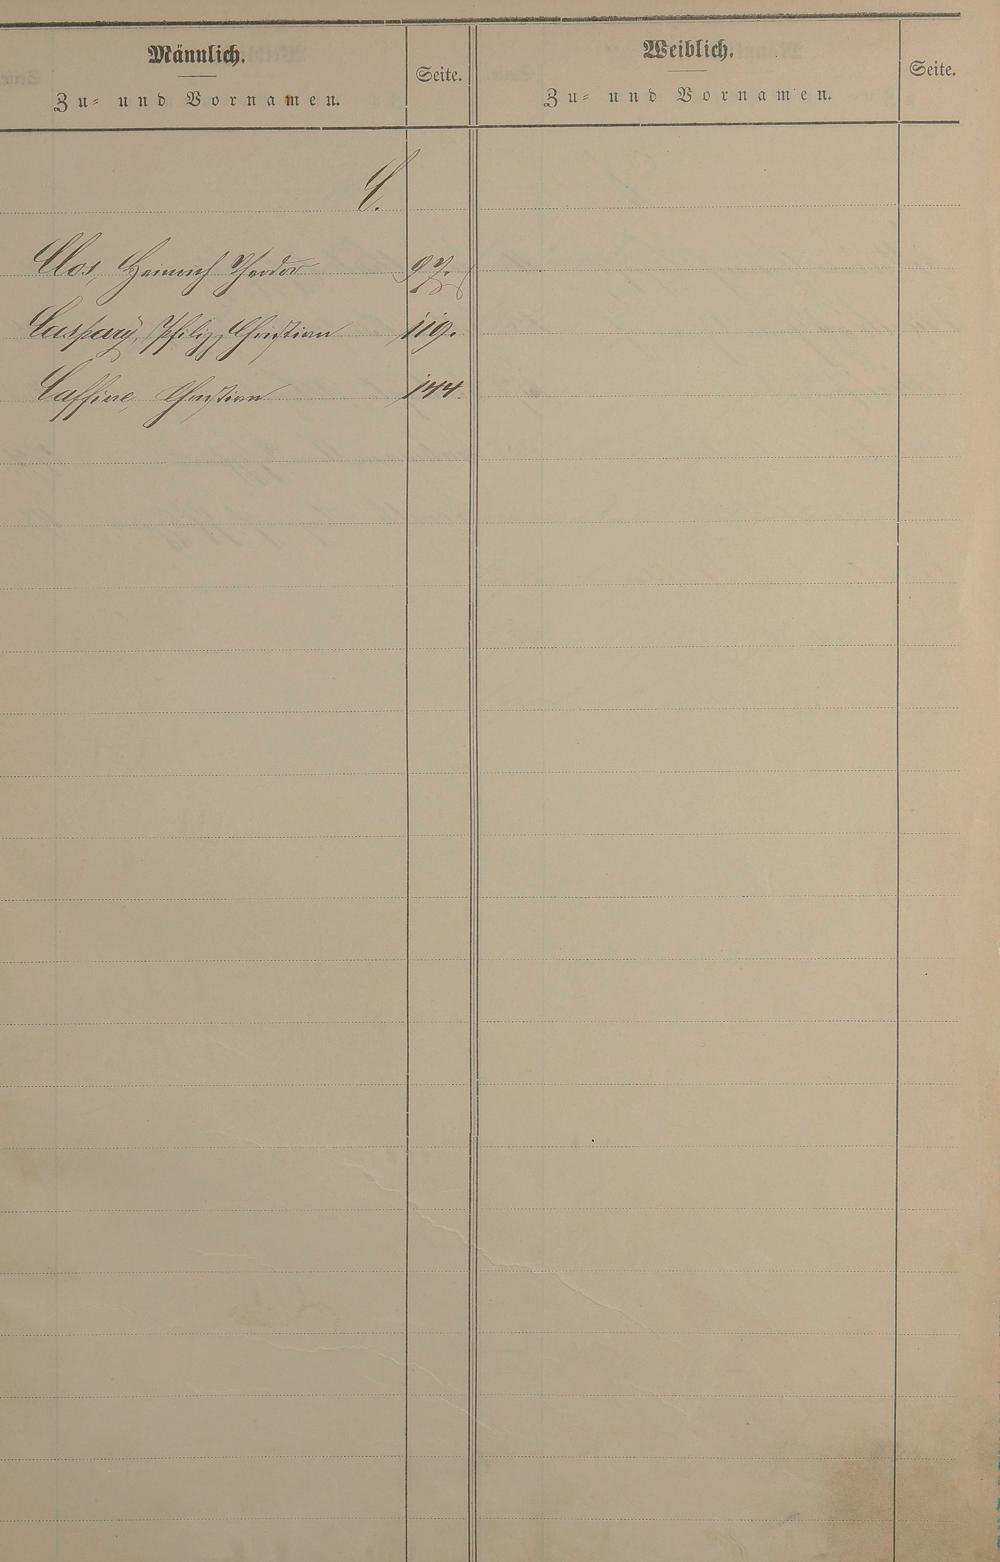 Männlich.
Zu- und Vornamen.
Seite.
Weiblich.
Zu- und Vornamen.
Seite.
C.
Clos, Heinrich Theodor 97.
Caspary, Philipp Christian 119.
Caffine, Christian 144.